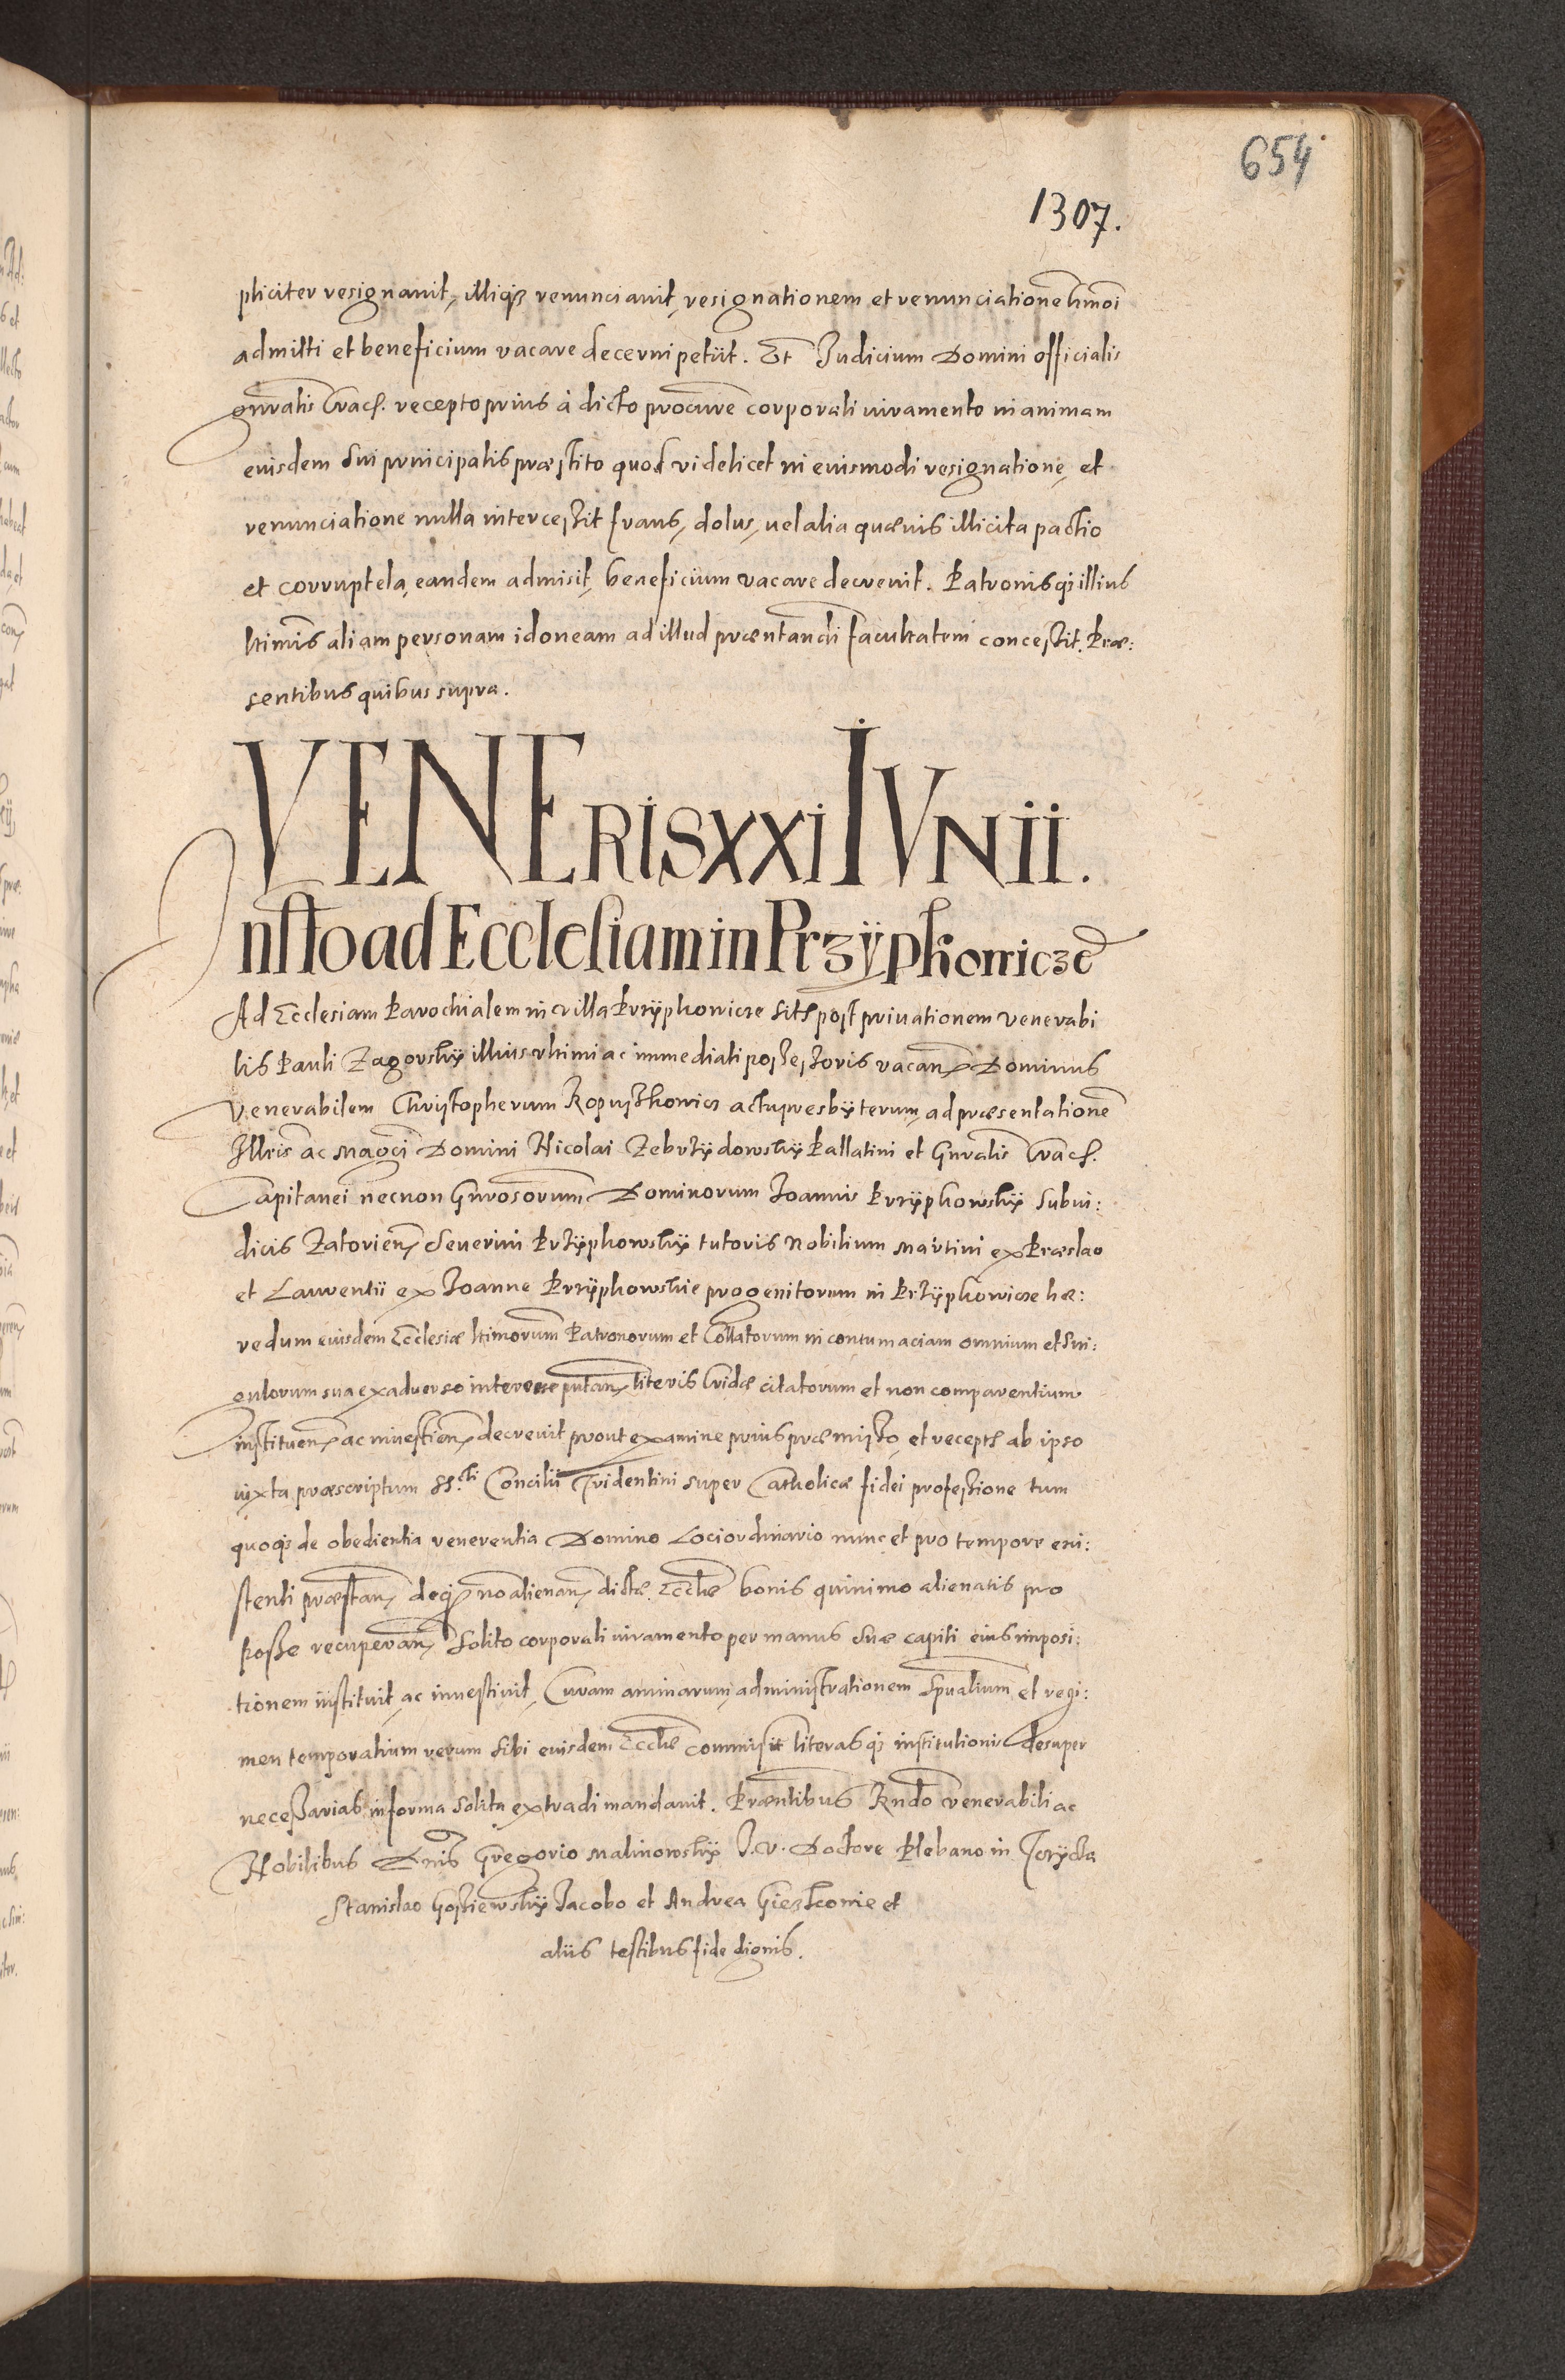 654
1307.
pliciter resignavit, illiq3 renunciavit, resignationem et renunciatione hmoi
admitti et beneficium vacare decerni petiit. Et Judicium Domini officialis
gnralis Crac. recepto prius à dicto procurre corporali iuramento in animam
eiusdem sui principalis præstito quod videlicet in eiusmodi resignatione, et
renunciatione nulla intercessit fraus, dolus, uel alia quævis illicita pactio
et corruptela, eandem admisit, beneficium vacare decrevit. Patronisq3 illius
ltimis aliam personam idoneam ad illud præntandi facultatem concessit. Præ:
sentibus quibus supra.
VENERIS XXI IVNII.
Insto ad Ecclesiam in Przÿpkowicze
Ad Ecclesiam Parochialem in villa Przÿpkowicze sitã post privationem venerabi
lis Pauli Zagorskÿ illius ultimi ac immediati possessoris vacan Dominus
Venerabilem Christopherum Kopuszkowicz actu presbÿterum, ad præsentatione
Illris ac Magci Domini Nicolai Zebrzÿdowskÿ Pallatini et Gnralis Crac.
Capitanei necnon Gnrosorum Dominorum Joannis Przÿpkowskÿ Subiu:
dicis Zatorien Severini Przÿpkowskÿ tutoris Nobilium Martini ex Præslao
et Laurentii ex Joanne Przÿpkowskie progenitorum in Przÿpkowicze hæ:
redum eiusdem Ecclesiæ ltimorum Patronorum et Collatorum in contumaciam omnium et sin:
gulorum sua ex adverso interesse putan literis Cridæ citatorum et non comparentium
instituen ac investien decrevit prout examine prius præmisso, et recepto ab ipso
iuxta præscriptum SS.cti Concilii Tridentini super Catholicæ fidei professione tum
quoq3 de obedientia reverentia Domino Loci ordinario nunc et pro tempore exi:
stenti præstan deq3 no alienan dictæ Eccliæ bonis quinimo alienatis pro
posse recuperan solito corporali iuramento per manus suæ capiti eius imposi:
tionem instituit, ac investivit, Curam animarum, administrationem Spualium, et regi:
men temporalium rerum sibi eiusdem Eccliæ commisit literasq3 institutionis desuper
necessarias in forma solita extradi mandavit. Præntibus Rndo venerabili ac
Nobilibus Dnis Gregorio Malinowskÿ J.V. Doctore Plebano in
Stanislao Gosziewskÿ Jacobo et Andrea et
aliis testibus fide dignis.